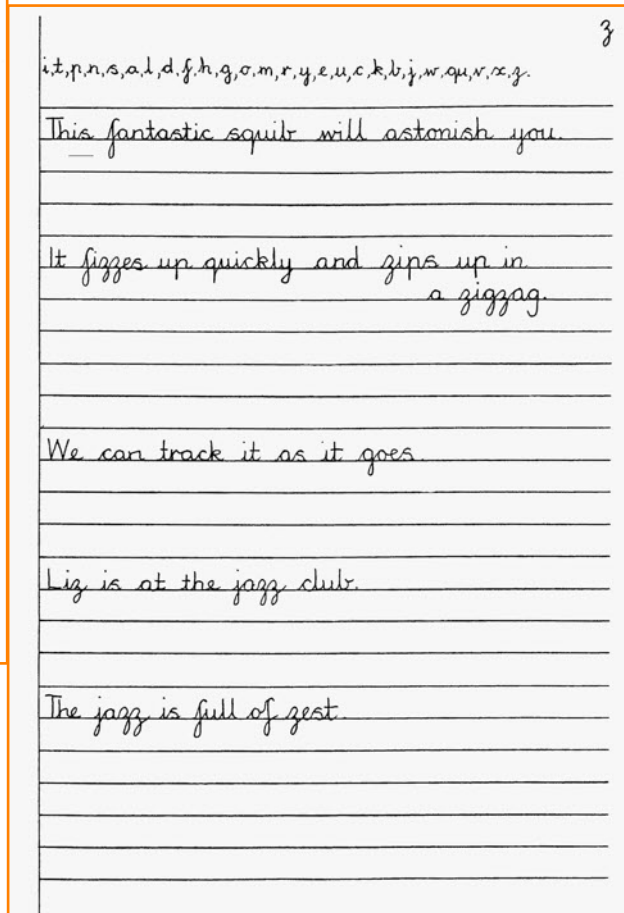 z
i,t,p,n,s,a,l,d,f,h,g,o,m,r,y,e,u,c,k,b,j,w,qu,v,x,z.
This fantastic squib will astonish you.
It fizzes up quickly and zips up in
a zigzag.
We can track it as it goes.
Liz is at the jazz club.
The jazz is full of zest.